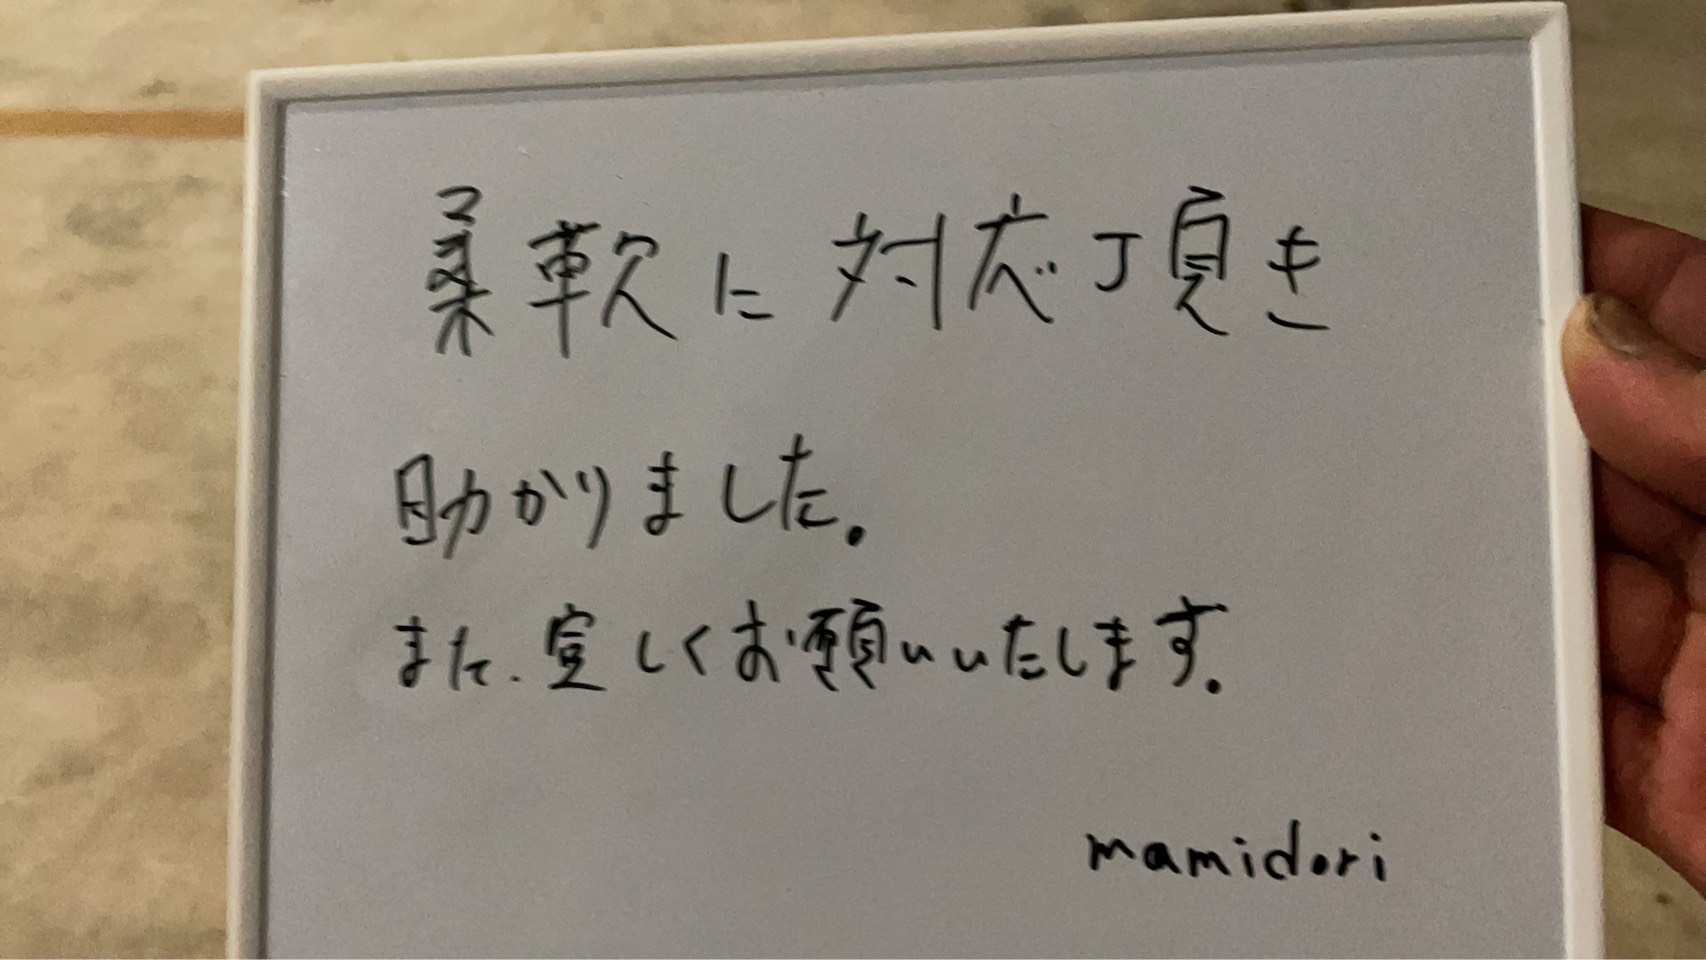 柔軟に対応頂き
助かりました。
また、宜しくお願いいたします。
mamidori